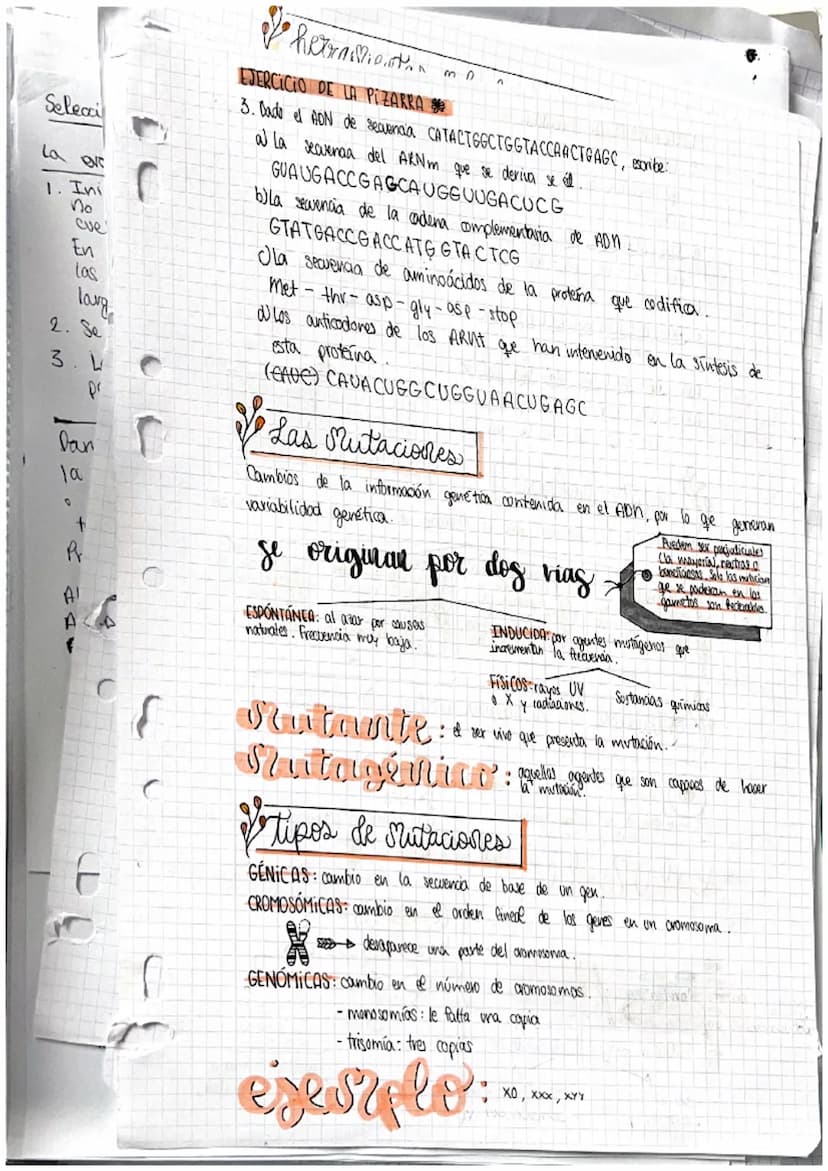 herramientas
EJERCICIO DE LA PIZARRA
3. Dado el ADN de secuencia CATACTGGCTGGTACCAACTGAGC, escribe:
a) La secuencia del ARNm que se deriva de él.
GUAUGACCGAGCAUGGUUGACUCG
b) La secuencia de la cadena complementaria de ADN.
GTATGACCGACCATGGTACTCG
c) La secuencia de aminoácidos de la proteína que codifica.
Met - thr - asp - gly - asp - stop
d) Los anticodones de los ARNt que han intervenido en la síntesis de
esta proteína.
(CAUC) CAUACUGGCUGGUAACUGAGC
Las Mutaciones
Cambios de la información genética contenida en el ADN, por lo qe generan
variabilidad genética.
se originan por dos vias
Pueden ser perjudiciales
(la mayoría), neutras o
beneficiosas. Solo las mutaciones
qe se producen en los
gametos son heredables.
ESPONTÁNEA: al azar por causas
naturales. Frecuencia muy baja.
INDUCIDA: por agentes mutágenos que
incrementan la frecuencia.
FÍSICOS: rayos UV
o X y radiaciones.
Sustancias químicas
Mutante: el ser vivo que presenta la mutación.
Mutagénico: aquellos agentes que son capaces de hacer
la mutación.
Tipos de Mutaciones
GÉNICAS: cambio en la secuencia de base de un gen.
CROMOSÓMICAS: cambio en el orden lineal de los genes en un cromosoma.
desaparece una parte del cromosoma.
GENÓMICAS: cambio en el número de cromosomas.
- monosomías: le falta una copia
- trisomía: tres copias
ejemplo: XO, XXX, XYY
Selecci
La
1. Ini
No
cue
En
las
larg
2. Se
3. L
Dan
la